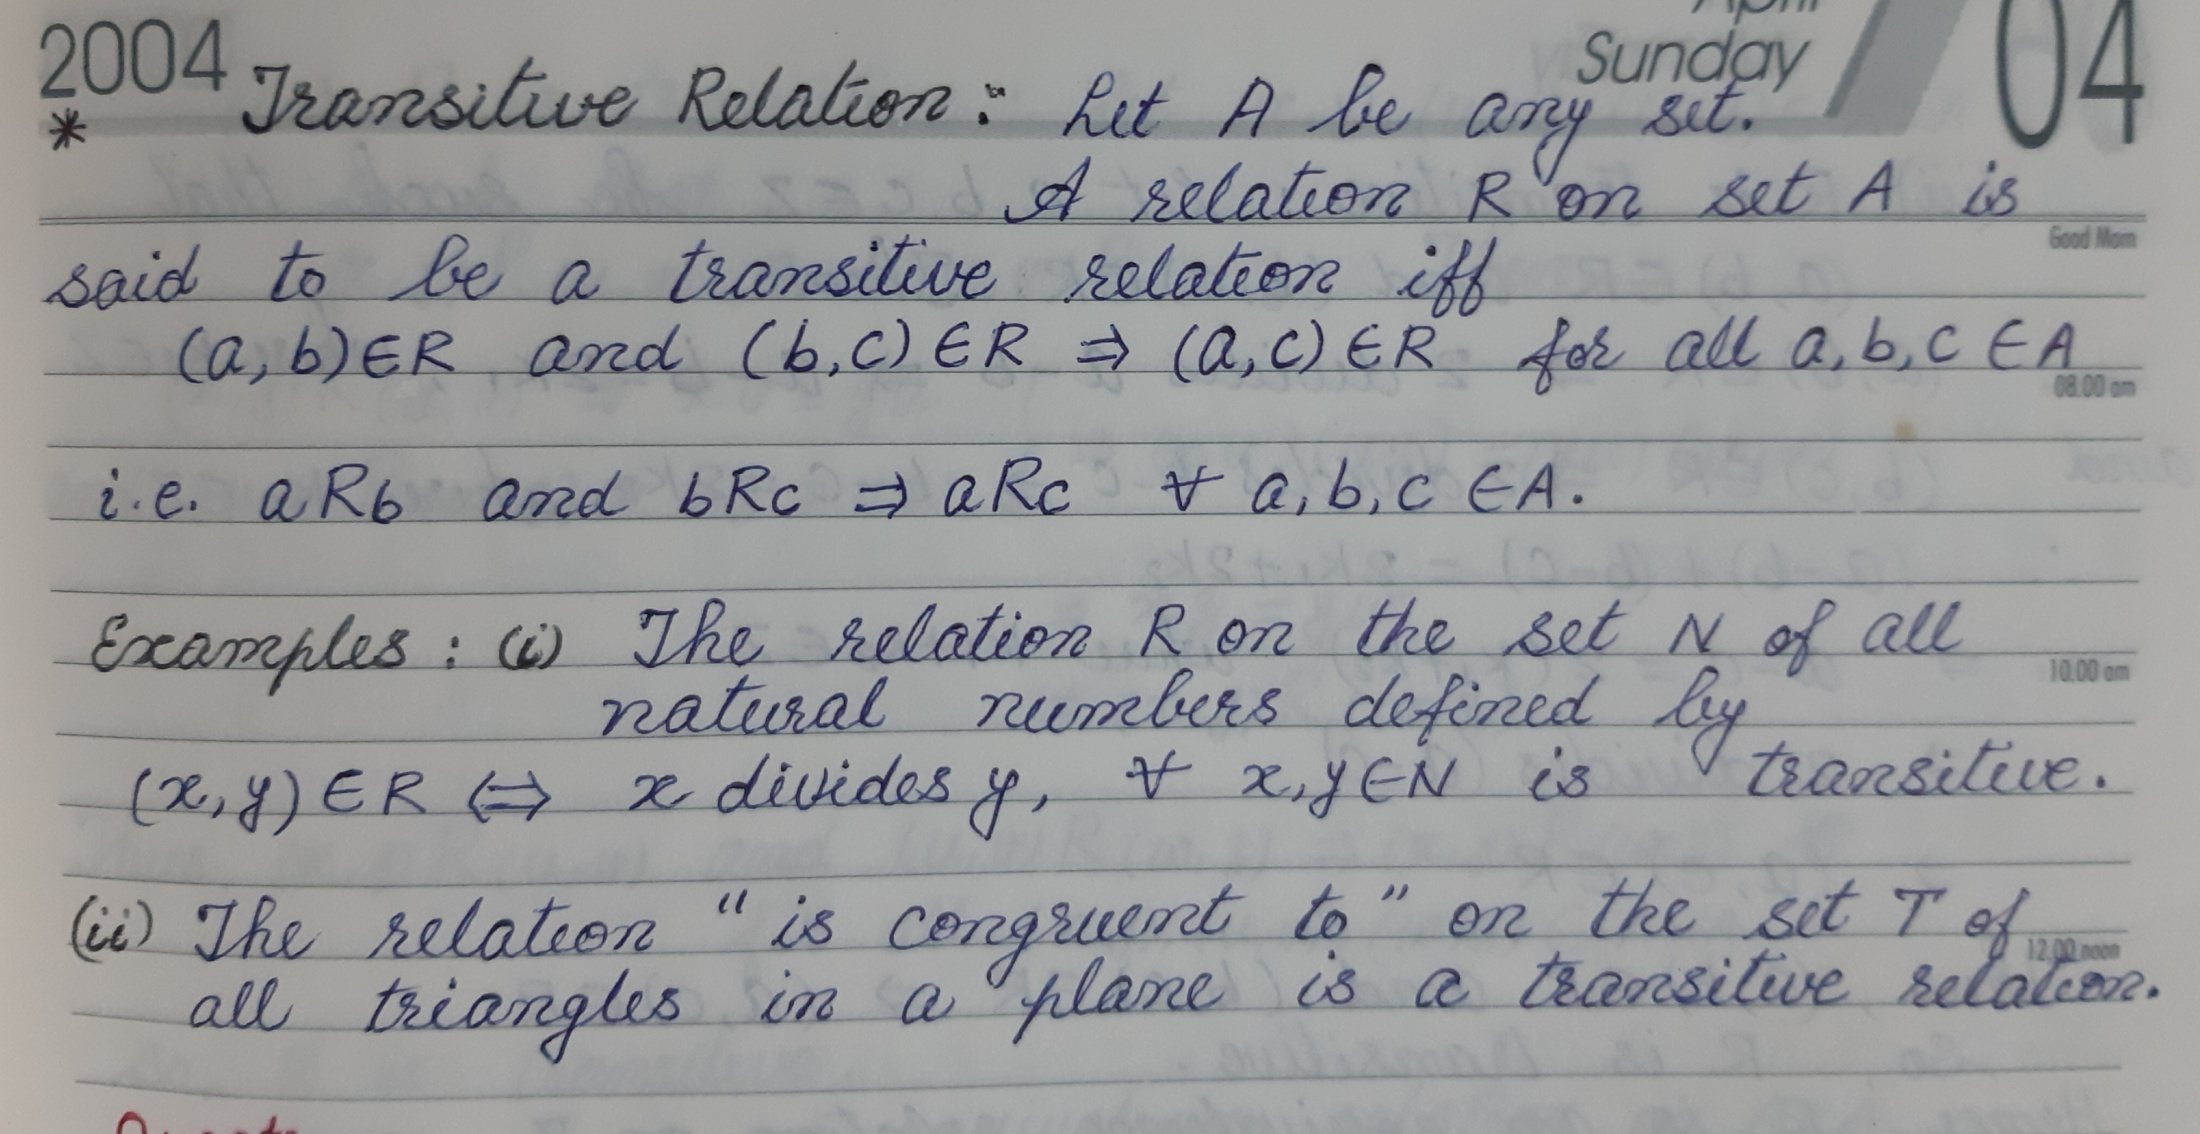 2004 April Sunday 04
* Transitive Relation : Let A be any set.
A relation R on set A is
Good Morn
said to be a transitive relation iff
(a, b) ∈ R and (b, c) ∈ R ⇒ (a, c) ∈ R for all a, b, c ∈ A
08.00 am
i.e. aRb and bRc ⇒ aRc ∀ a, b, c ∈ A.
Examples : (i) The relation R on the set N of all
10.00 am
natural numbers defined by
(x, y) ∈ R ⇔ x divides y, ∀ x, y ∈ N is transitive.
(ii) The relation "is congruent to" on the set T of
12.00 noon
all triangles in a plane is a transitive relation.